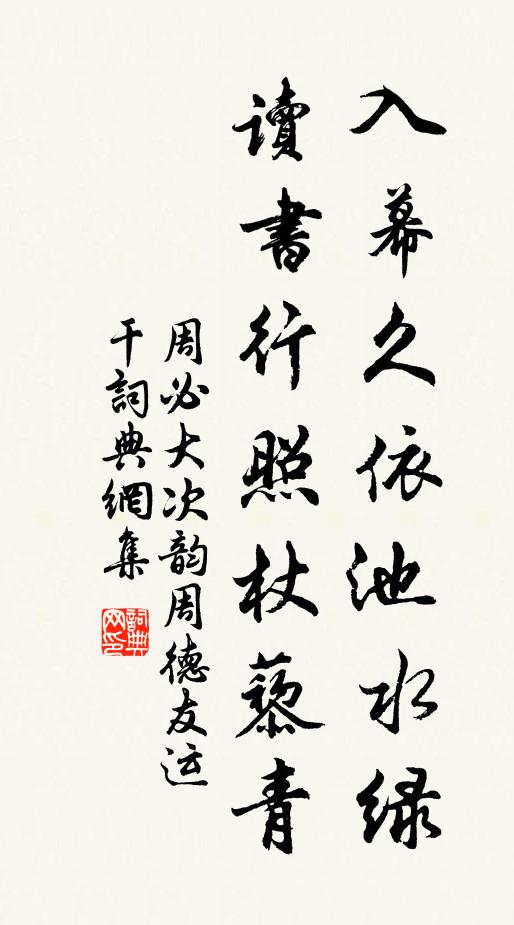 入幕久依池水绿
讀書行照杖藜青
周必大次韵周德友运
干詞典網集
詞典
网印